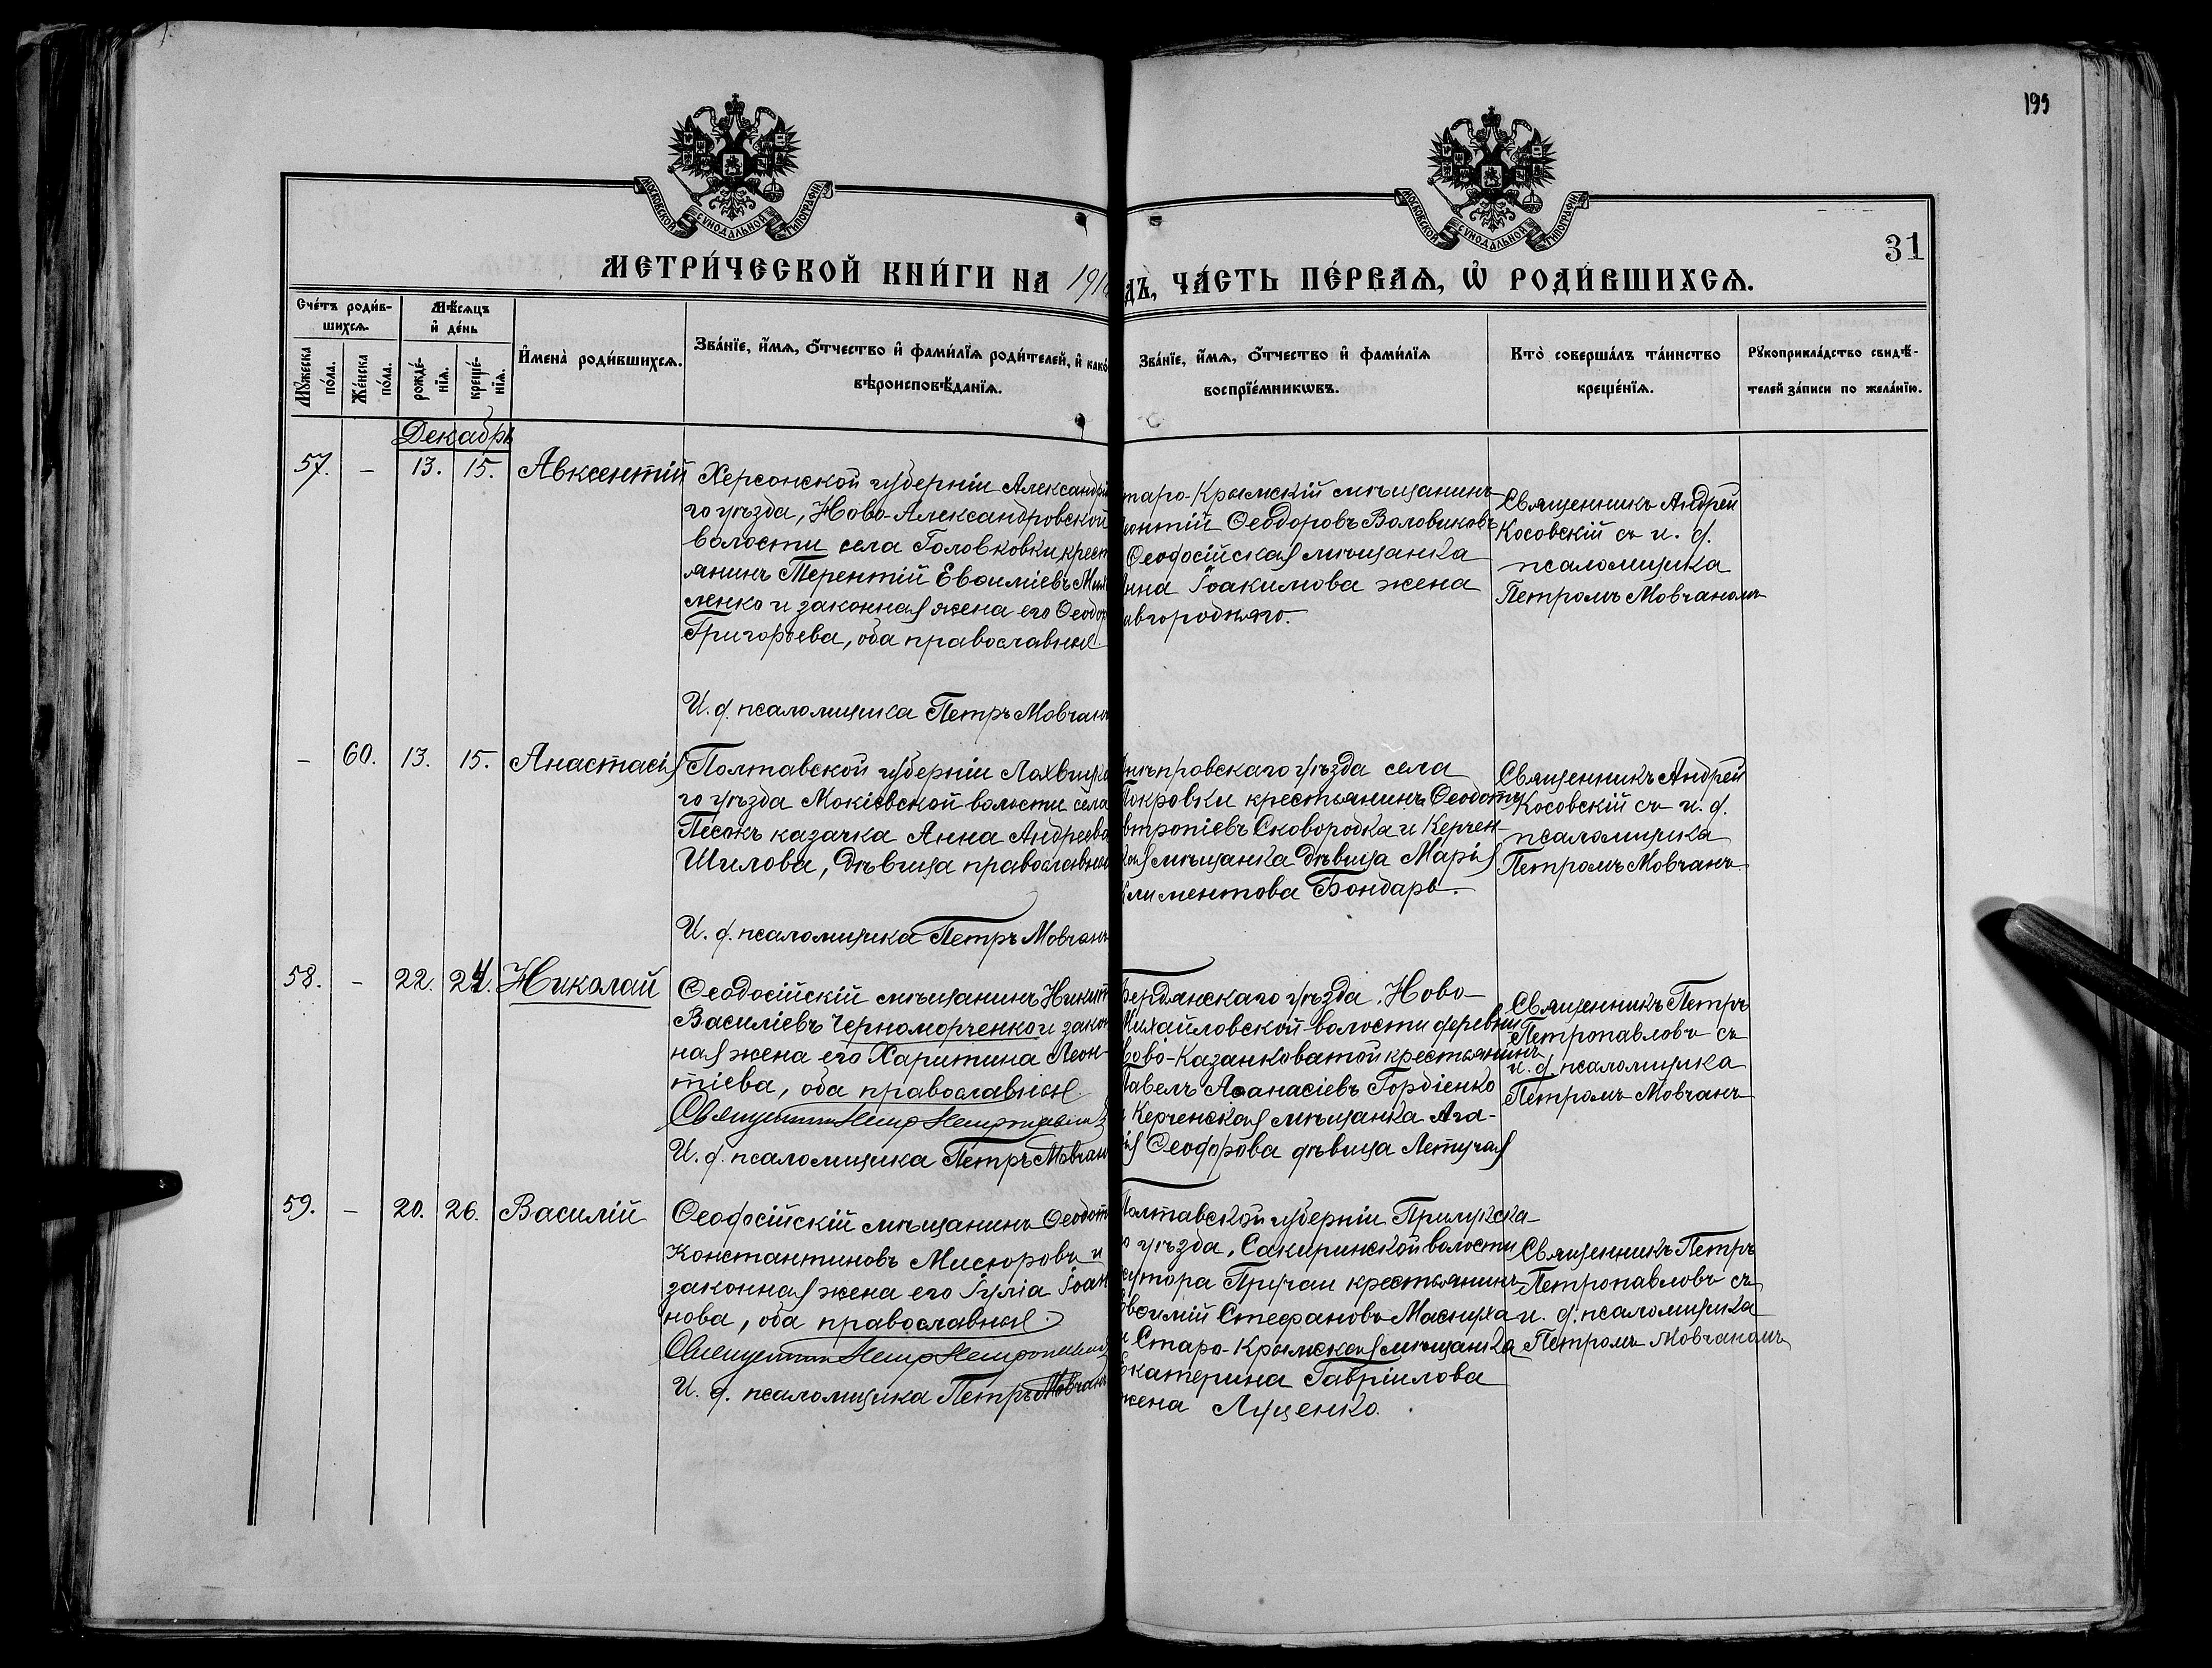 195
МОСКОВСКОЙ СУНОДАЛЬНОЙ ТИПОГРАФІИ
МОСКОВСКОЙ СУНОДАЛЬНОЙ ТИПОГРАФІИ
31
МЕТРИ́ЧЕСКОЙ КНИ́ГИ НА 191
ДЪ, ЧА́СТЬ ПЕ́РВАѦ, Ѡ҆ РОДИ́ВШИХСѦ.
Сче́тъ роди́в-
шихсѧ.
Мꙋ́жеска по́ла.
Же́нска по́ла.
Мѣ́сѧцъ
и҆ де́нь
рожде́-
нїѧ.
креще́-
нїѧ.
И҆мена̀ роди́вшихсѧ.
Зва́нїе, и҆́мѧ, ѻ҆́тчество и҆ фами́лїѧ роди́телей, и҆ како́
вѣроисповѣ́данїѧ.
Зва́нїе, и҆́мѧ, ѻ҆́тчество и҆ фами́лїѧ
воспрїе́мникѡвъ.
Кто̀ соверша́лъ та́инство
креще́нїѧ.
Рꙋкоприкла́дство свидѣ́-
телей за́писи по жела́нїю.
Декабрь
57. – 13. 15. Авксентій
Херсонской губерніи Александрій
го уѣзда, Ново-Александровской
волости села Головковки, крест
янинъ Терентій Евѳиміевъ
ленко и законная жена его Ѳеодор
Григорьева, оба православные
И. д. псаломщика Петръ Мовчанъ
таро-Крымскій мѣщанинъ
еонтій Ѳеодоровъ Воловиковъ
Ѳеодосійская мѣщанка
нна Іоакимова жена
авгородняго.
Священникъ Андрей
Косовскій съ и. д.
псаломщика
Петромъ Мовчаномъ
– 60. 13. 15. Анастасія
Полтавской губерніи Лохвицка
го уѣзда Мокіевской волости села
Песокъ казачка Анна Андреева
Шилова, дѣвица православная
И. д. псаломщика Петръ Мовчанъ
нѣпровскаго уѣзда села
Покровки крестьянинъ Ѳеодотъ
втропіевъ Сковородка и Керчен-
кая мѣщанка дѣвица Марія
Климентова Бондарь.
Священникъ Андрей
Косовскій съ и. д.
псаломщика
Петромъ Мовчанъ
58. – 22. 24. Николай
Ѳеодосійскій мѣщанинъ Никит
Василіевъ Черноморченко и закон
ная жена его Харитина Леон-
тіева, оба православные.
Священникъ Петръ Петропавловъ
И. д. псаломщика Петръ Мовчан
Бердянскаго уѣзда, Ново-
Михайловской волости деревни
Ново-Казанковатой крестьянинъ
Павелъ Аѳанасіевъ Гордіенко
и Керченская мѣщанка Ага-
ія Ѳеодорова дѣвица Летучая
Священникъ Петръ
Петропавловъ съ
и. д. псаломщика
Петромъ Мовчанъ
59. – 20. 26. Василій
Ѳеодосійскій мѣщанинъ Ѳеодот
Константиновъ Мисюровъ и
законная жена его Іулія Іоан
нова, оба православные.
Священникъ Петръ Петропавловъ
И. д. псаломщика Петръ Мовчанъ
Полтавской губерніи Прилукска-
о уѣзда, Сакиринской волости
хутора Пручаи крестьянинъ
Евѳимій Стефановъ Маснуха
и Старо-Крымская мѣщанка
Екатерина Гавріилова
жена Луценко.
Священникъ Петръ
Петропавловъ съ
и. д. псаломщика
Петромъ Мовчаномъ